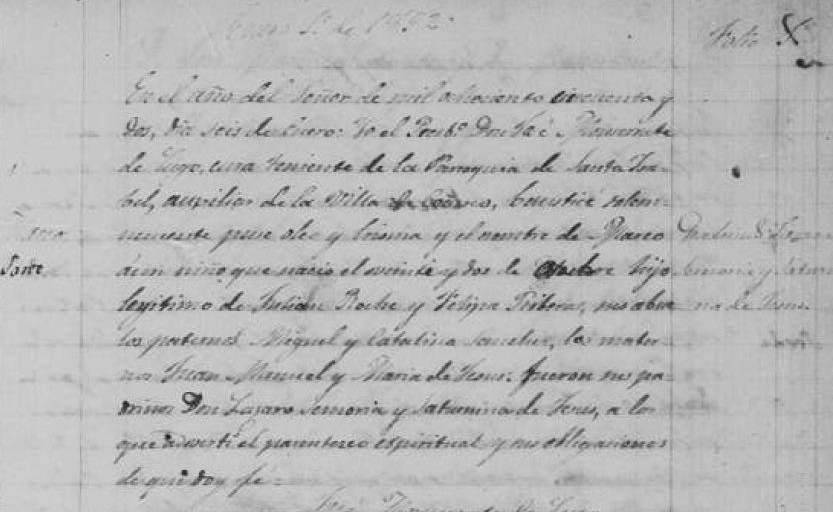 Enero 1º de 1852
Folio X
En el año del Señor de mil ochocientos cincuenta y
dos, dia seis de Enero: Yo el Presbº Don José Monserrate
de Lugo, cura teniente de la Parroquia de Santa Isa-
bel, auxiliar de la Villa de Coamo, bauticé solem-
nemente puse oleo y crisma y el nombre de Marco
á un niño que nació el veinte y dos de Octubre hijo
legitimo de Julian Roche y Felipa Ribera, sus abue-
los paternos Miguel y Catalina Sanchez, los mater-
nos Juan Manuel y Maria de Jesus: fueron sus pa-
drinos Don Lazaro Semoria y Saturnina de Jesus, á los
que advertí el parentesco espiritual y sus obligaciones
de que doy fé =
José Monserrate de Lugo